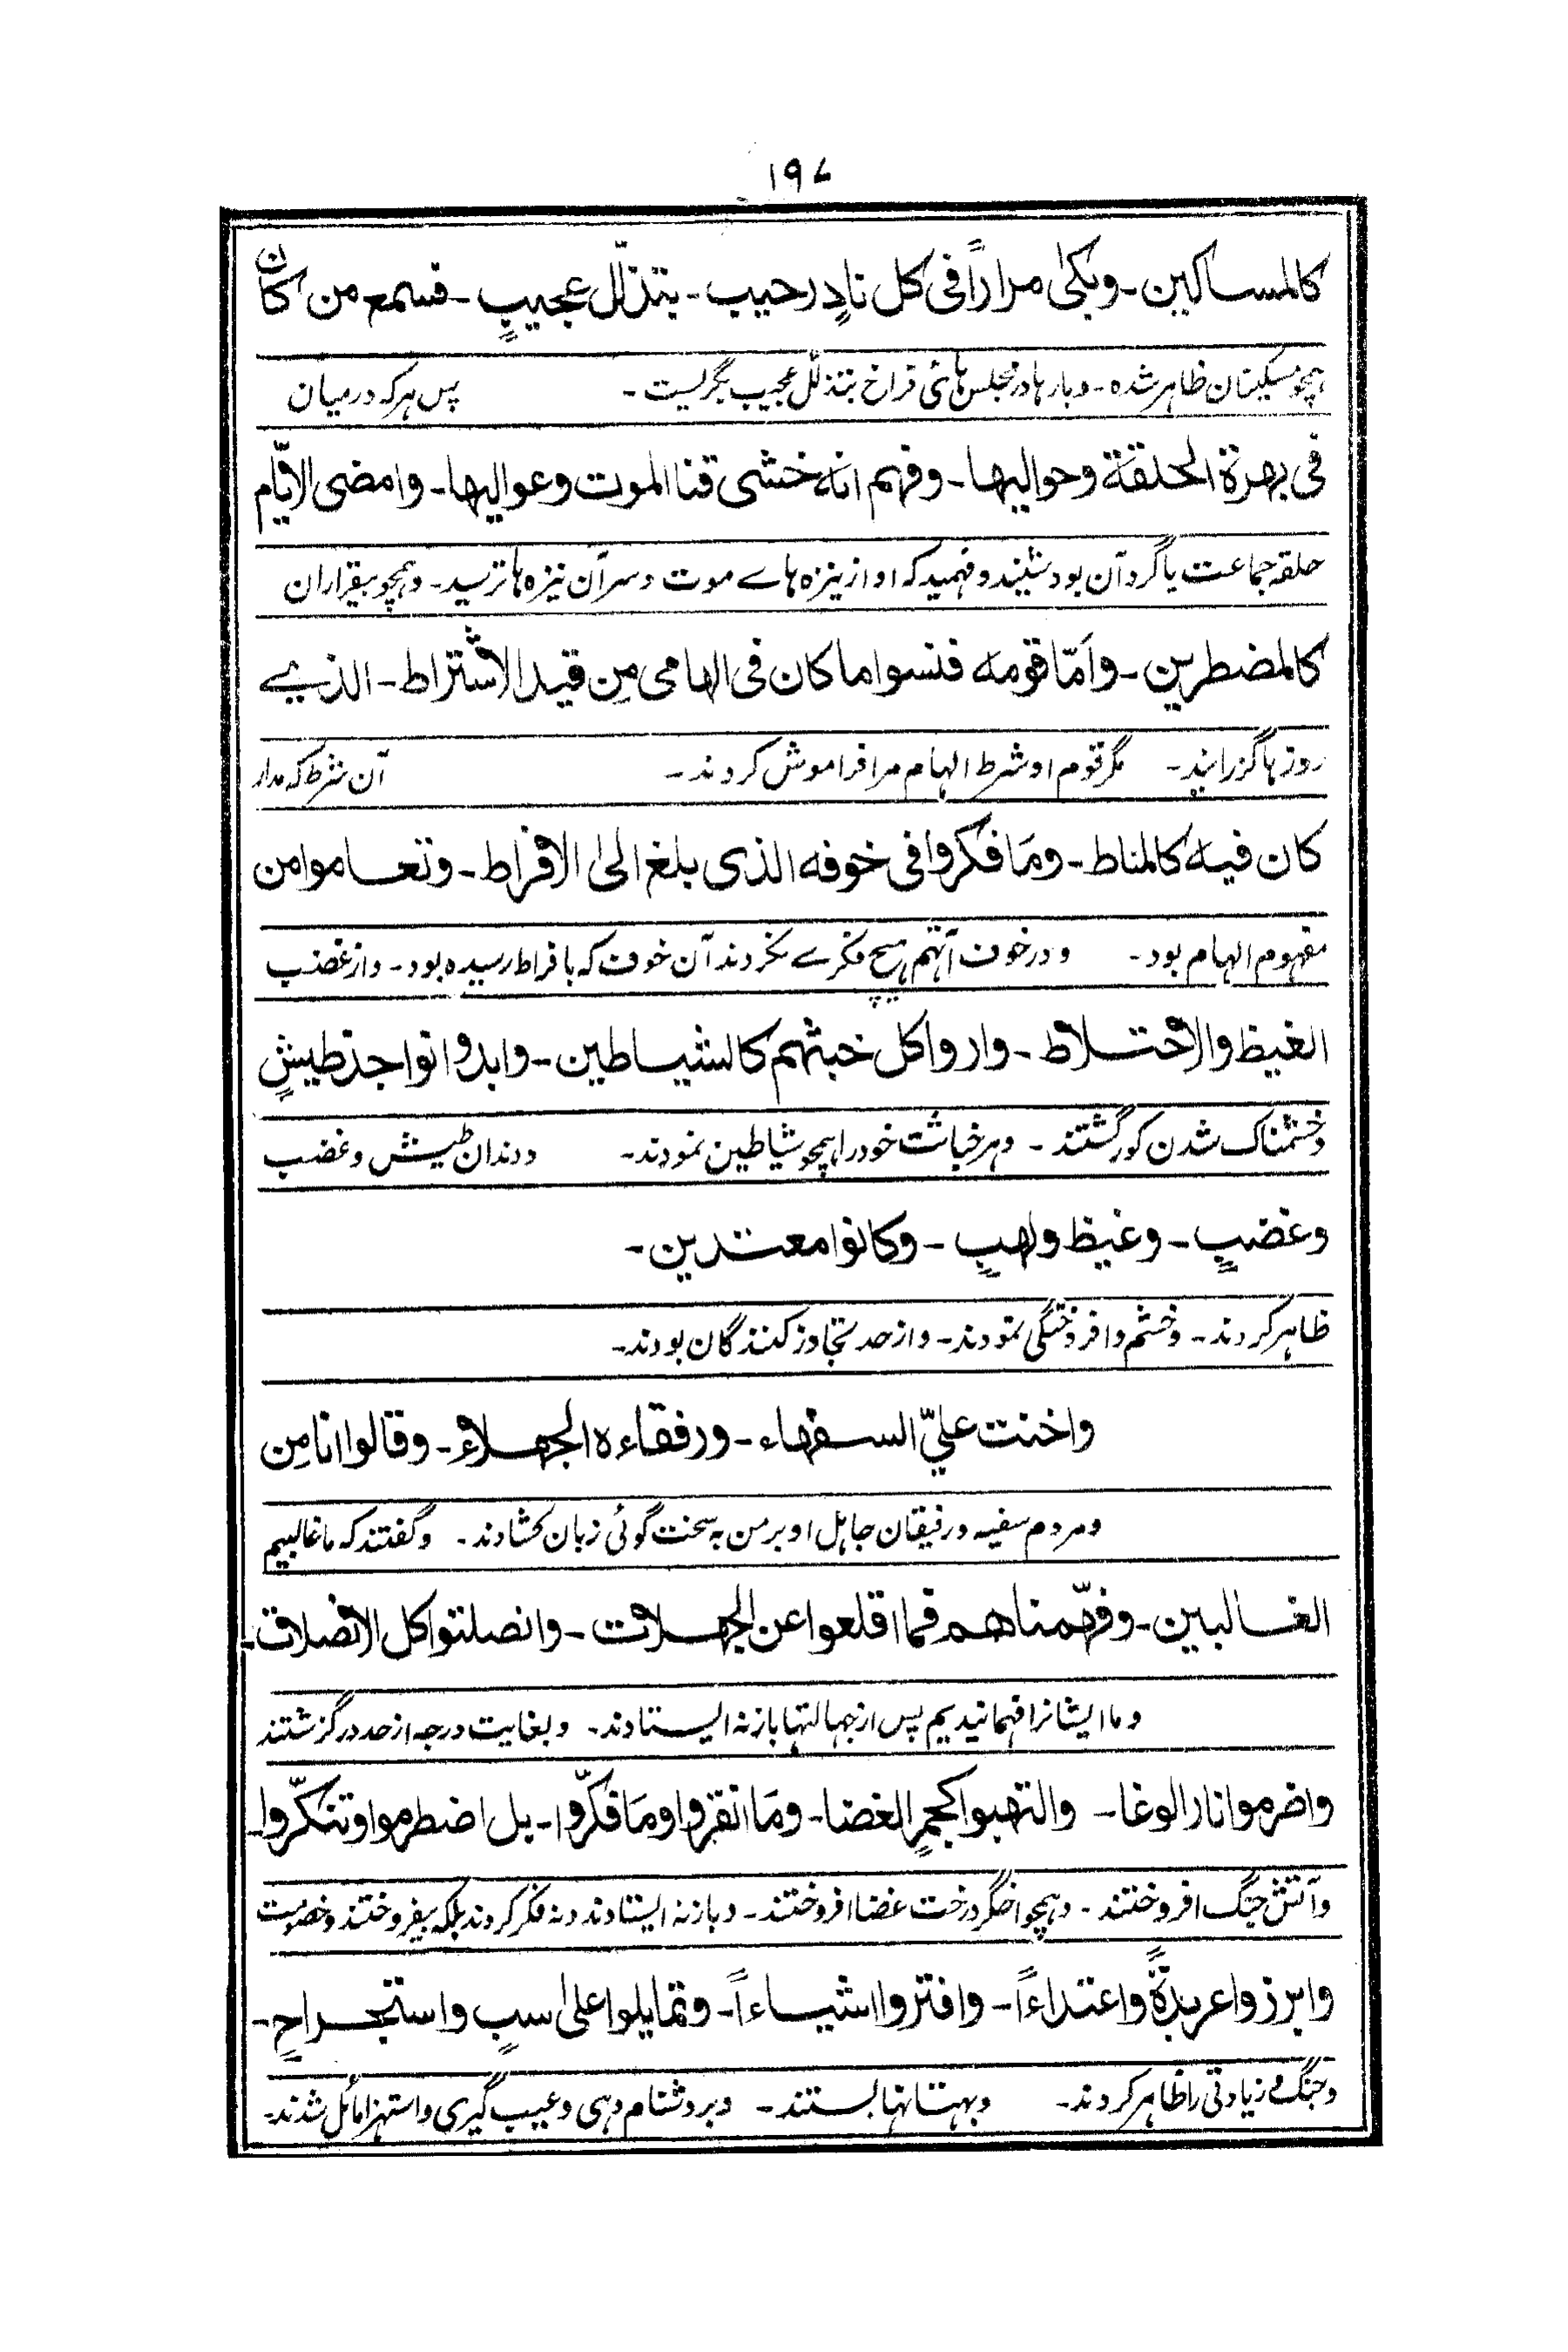 ۱۹۷
كالمساكين۔ وبكٰى مرارًا فى كل نادٍ رحيب۔ بتذلّل عجيبٍ۔ فسمع من كان
ہمچو مسکینان ظاہر شدہ۔ و بارہا در مجلس ہائی فراخ بتذلل عجیب بگریست۔ پس ہر کہ درمیان
فى بهرة الحلقة وحواليها۔ وفهم انه خشى قنا الموت وعواليها۔ وامضى الايّام
حلقہ جماعت یا گرد آن بود شنید و فہمید کہ او از نیزہ ہاے موت و سر آن نیزہ ہا ترسید۔ و ہمچو بیقراران
كالمضطرين۔ وامّا قومه فنسوا ما كان فى الهامى مِن قيد الاشتراط۔ الذى
روزہا گزرانید۔ مگر قوم او شرط الہام مرا فراموش کردند۔ آن شرط کہ مدار
كان فيه كالمناط۔ ومَا فكروا فى خوفه الذى بلغ الىٰ الافراط۔ وتعاموا من
مفہوم الہام بود۔ و در خوف آتھم ہیچ فکرے نکردند آن خوف کہ بافراط رسیدہ بود۔ و از غضب
الغيظ والاختلاط۔ واروا كل خبثهم كالشياطين۔ وابدوا نواجذ طيشٍ
و خشمناک شدن کور گشتند۔ و ہر خباثت خود را ہمچو شیاطین نمودند۔ و دندان طیش و غضب
وغضبٍ۔ وغيظ ولهبٍ۔ وكانوا معتدين۔
ظاہر کردند۔ و خشم و افروختگی نمودند۔ و از حد تجاوز کنندگان بودند۔
واخنت علیّ السفهاء۔ ورفقاءه الجهلاء۔ وقالوا انا مِن
و مردم سفیہ و رفیقان جاہل او بر من بہ سخت گوئی زبان کشادند۔ و گفتند کہ ما غالبیم
الغالبين۔ وفهّمناهم فما اقلعوا عن الجهلات۔ وانصلتوا كل الانصلات۔
و ما ایشانرا فہمانیدیم پس از جہالتہا باز نہ ایستادند۔ و بغایت درجہ از حد در گزشتند
واضرموا نار الوغا۔ والتهبوا كجمرِ الغضا۔ ومَا انقروا ومَا فكّروا۔ بل اضطرموا وتنكّروا۔
و آتش جنگ افروختند۔ و ہمچو اخگر درخت غضا افروختند۔ و باز نہ ایستادند و نہ فکر کردند بلکہ بیفروختند و خصومت
وابرزوا عربدةً واعتداءً۔ وافتروا اشياءاً۔ وتمايلوا علىٰ سبٍ واستجراحٍ۔
و جنگ و زیادتی را ظاہر کردند۔ و بہتانہا بستند۔ و بر دشنام دہی و عیب گیری و استہزا مائل شدند۔